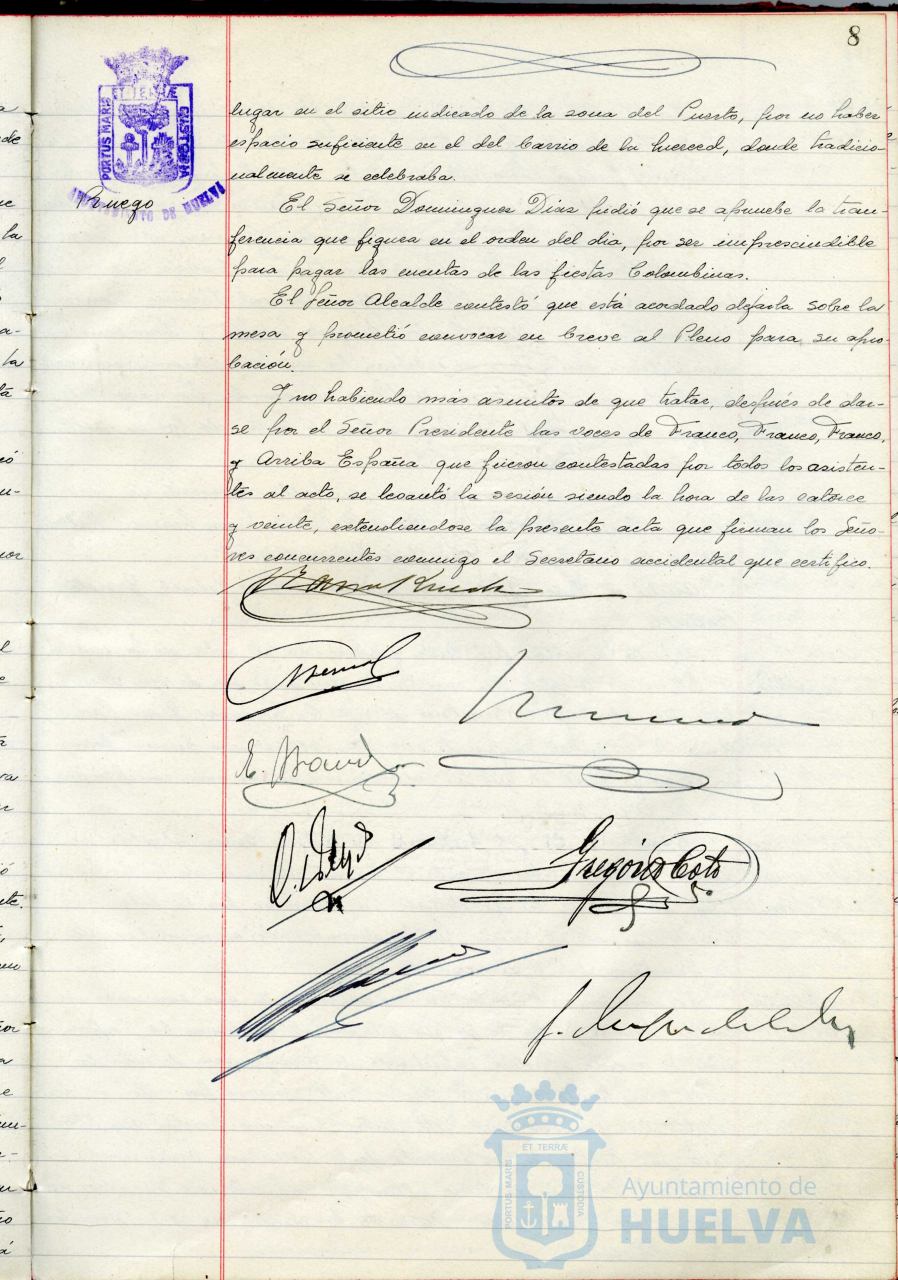 8
PORTUS MARIS
ET TERRÆ
CUSTODIA
AYUNTAMIENTO DE HUELVA
Ruego
lugar en el sitio indicado de la zona del Puerto, por no haber
espacio suficiente en el del barrio de la Merced, donde tradicio-
nalmente se celebraba.
El Señor Dominguez Diaz pidió que se apruebe la trans-
ferencia que figura en el orden del dia, por ser imprescindible
para pagar las cuentas de las fiestas Colombinas.
El Señor Alcalde contestó que está acordado dejarla sobre la
mesa y prometió convocar en breve al Pleno para su apro-
bación.
Y no habiendo más asuntos de que tratar, después de dar-
se por el Señor Presidente las voces de Franco, Franco, Franco,
y Arriba España que fueron contestadas por todos los asisten-
tes al acto, se levantó la sesión siendo la hora de las catorce
y veinte, extendiendose la presente acta que firman los Seño-
res concurrentes conmigo el Secretario accidental que certifico.
Gregorio Coto
PORTUS MARIS
ET TERRÆ
CUSTODIA
Ayuntamiento de
HUELVA